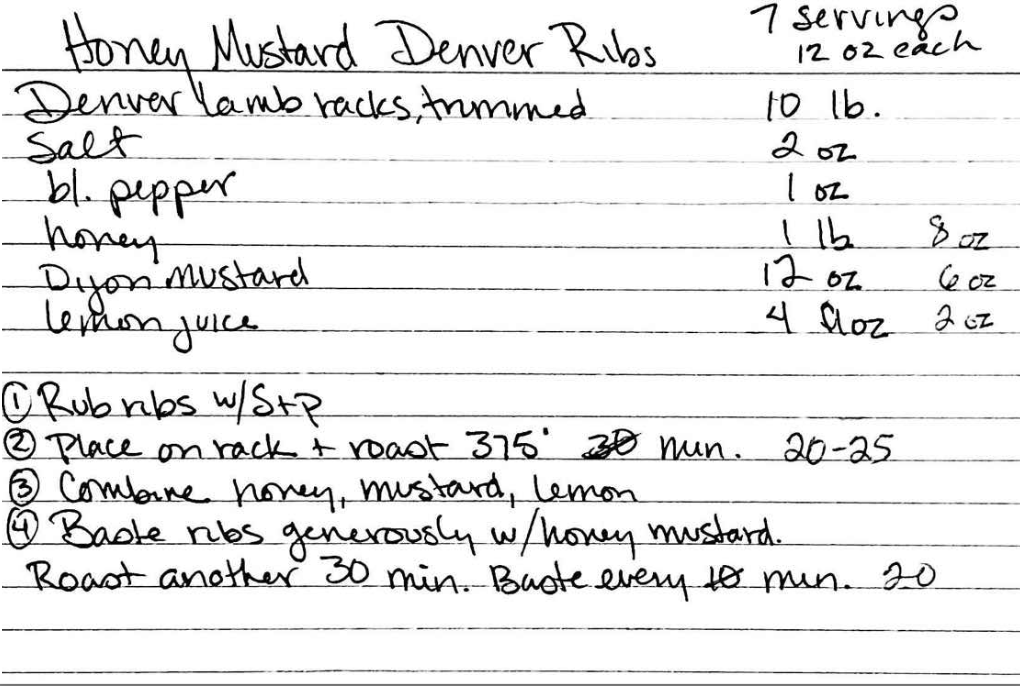 Honey Mustard Denver Ribs 7 servings
12 oz each
Denver lamb racks, trimmed 10 lb.
Salt 2 oz
bl. pepper 1 oz
honey 1 lb 8 oz
Dijon mustard 12 oz 6 oz
lemon juice 4 floz 2 oz
① Rub ribs w/S+P
② Place on rack + roast 375° 30 min. 20-25
③ Combine honey, mustard, lemon
④ Baste ribs generously w/honey mustard.
Roast another 30 min. Baste every 10 min. 20